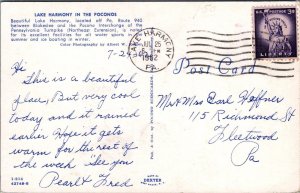 LAKE HARMONY IN THE POCONOS
Beautiful Lake Harmony, located off Pa. Route 940
between Blakeslee and the Pocono Interchange of the
Pennsylvania Turnpike (Northeast Extension), is noted
for its excellent facilities for all water sports in
summer and ice boating in winter.
Color Photography by Albert W.
7-2
Hi
This is a beautiful
place, But very cool
today and it rained
earlier. Hope it gets
warm for the rest of
the week. See you
Pearl & Fred
LAKE HARMONY
JUL 25
1962
PA.
3¢
LIBERTY
Post Card
Address
Mr & Mrs Earl Heffner
115 Richmond St
Fleetwood
Pa
DEXTER